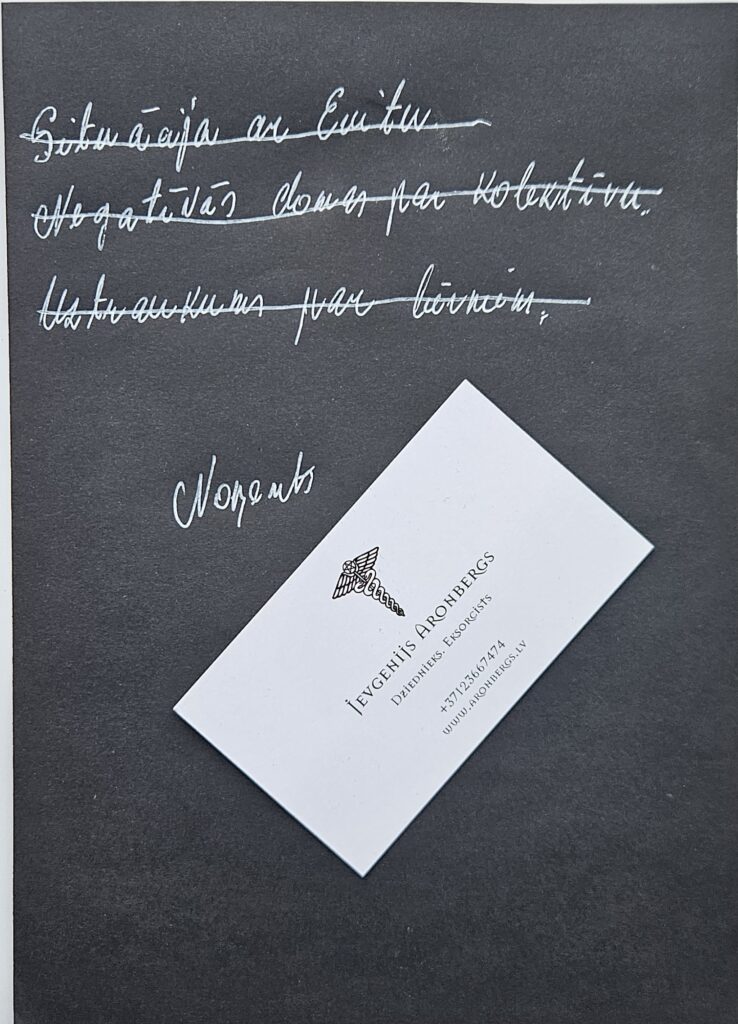 Situācija ar Emitu
Negatīvās domas par kolektīvu.
Uztraukums par bērniem.
Noņemts
Jevgenijs Aronbergs
Dziednieks. Eksorcists
+37123667474
www.aronbergs.lv